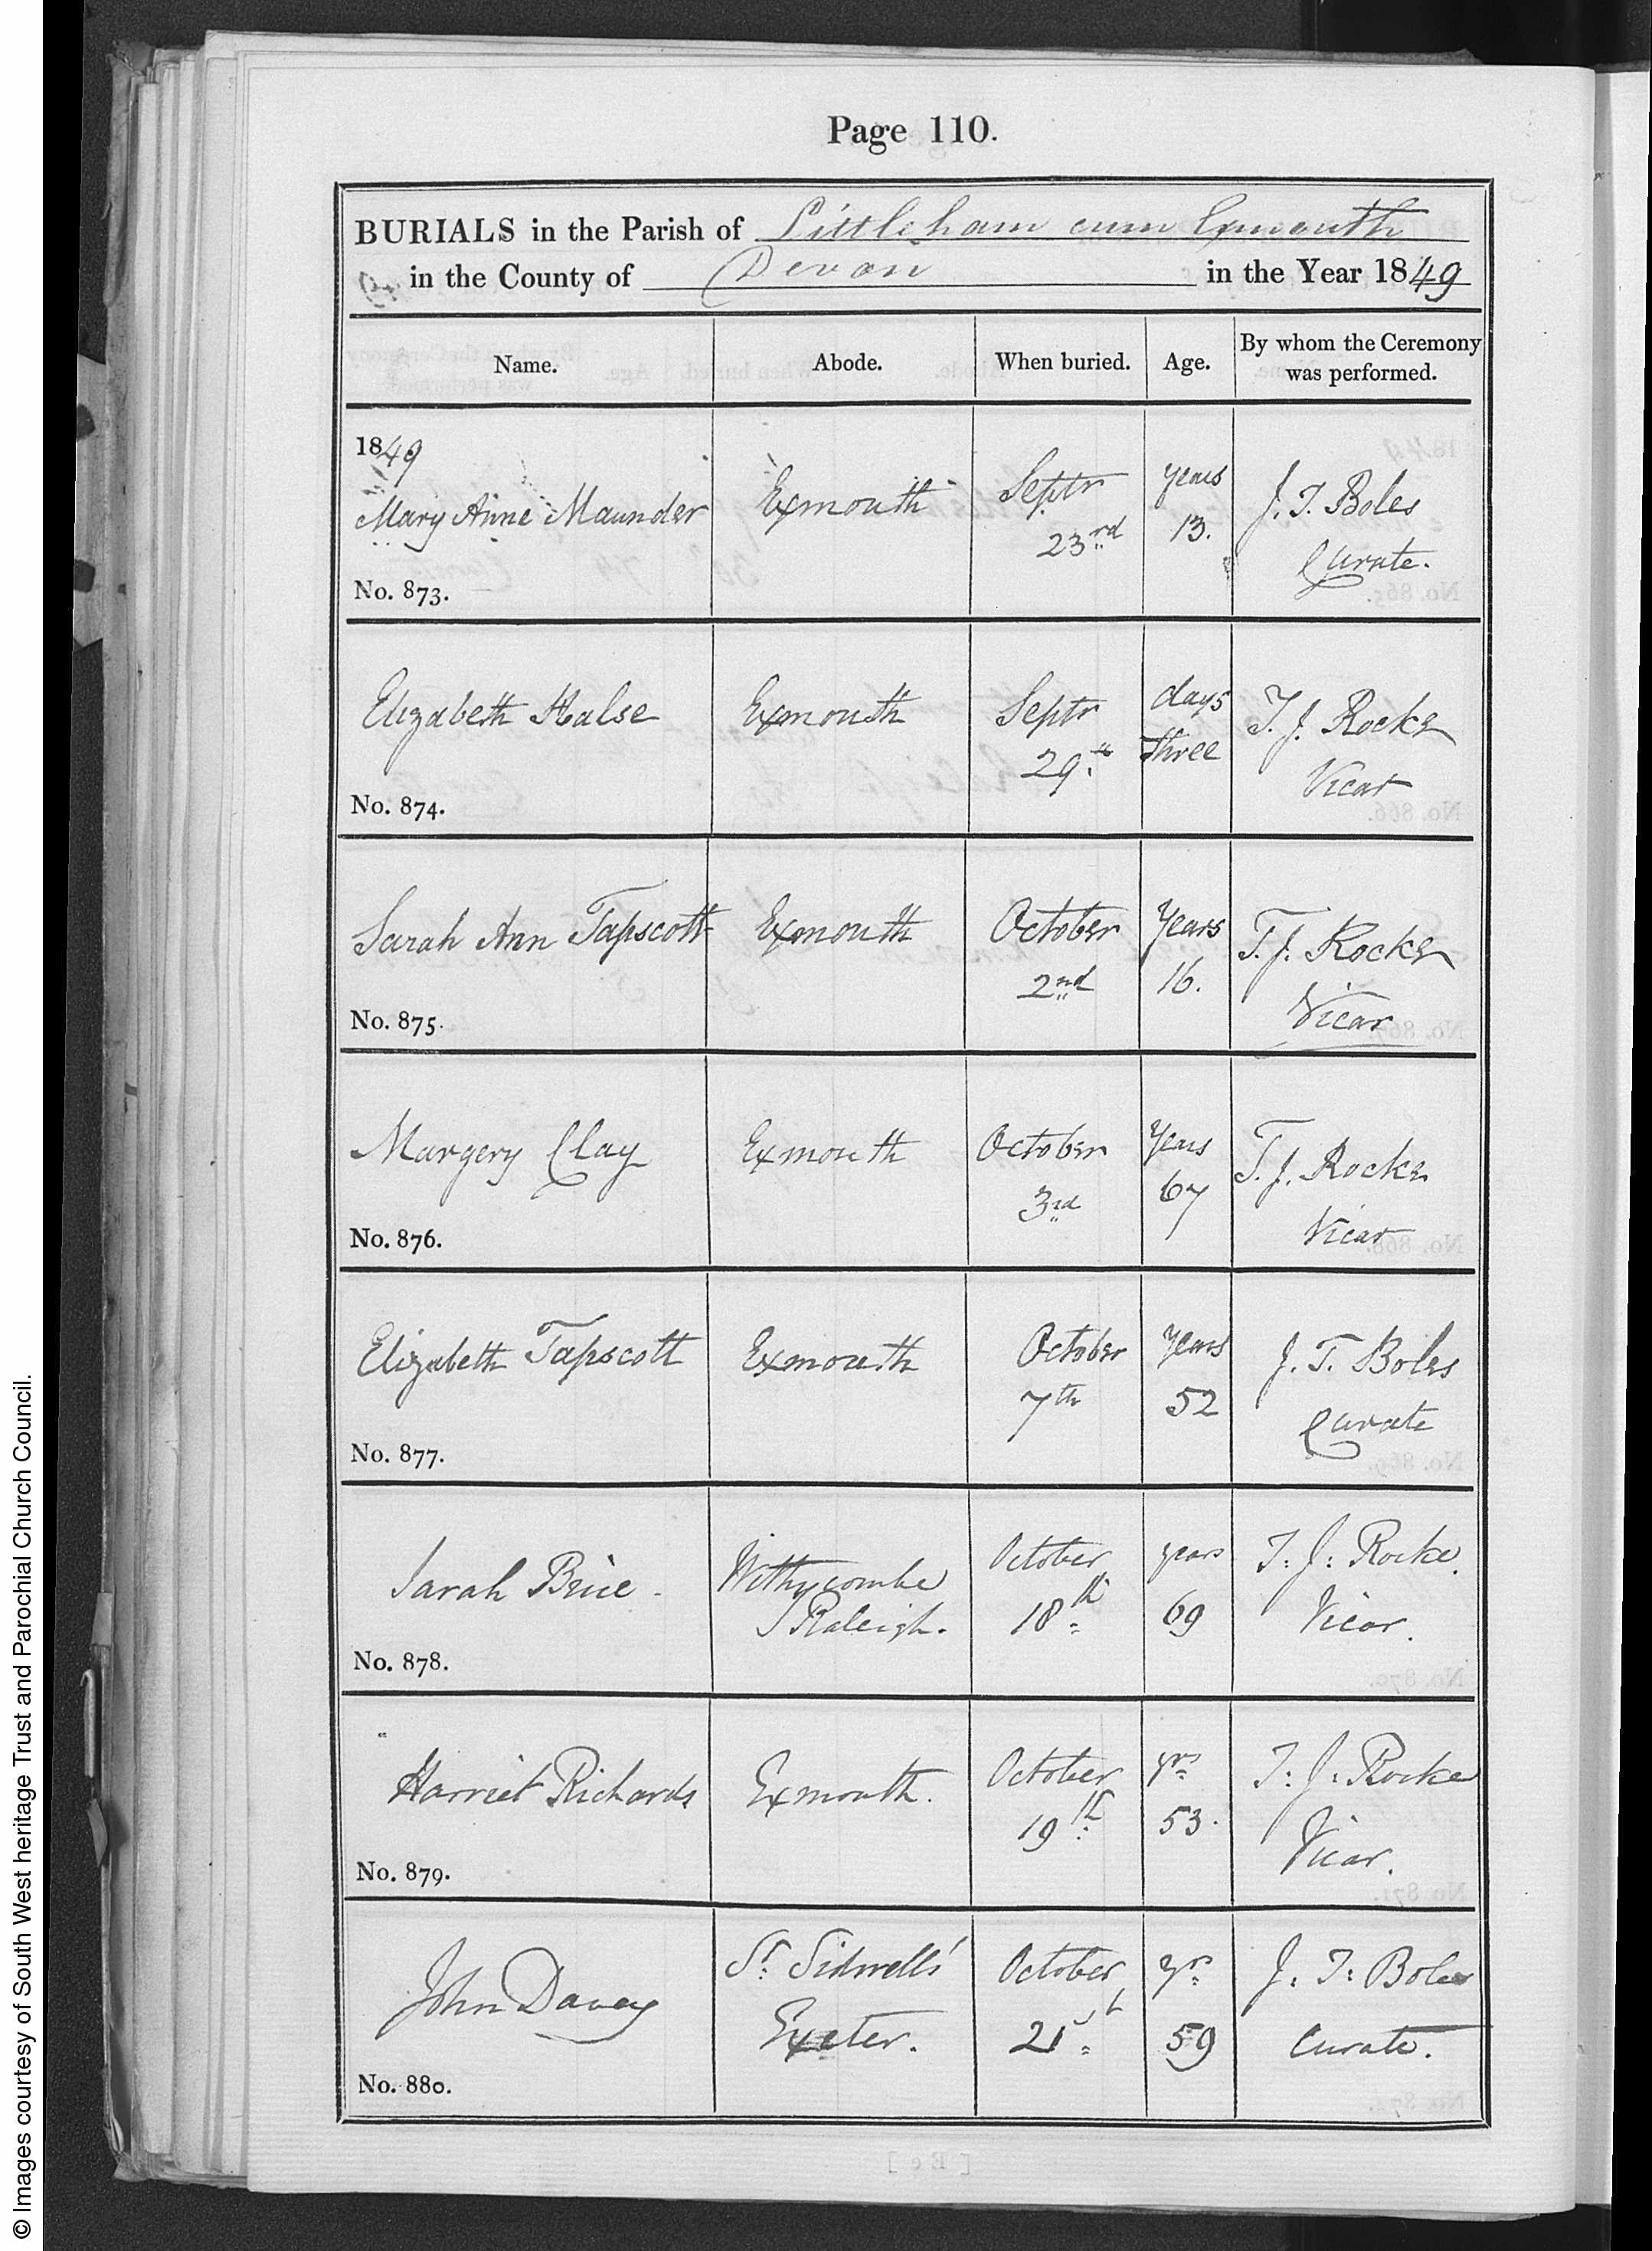 Page 110.
BURIALS in the Parish of Littleham cum Exmouth
in the County of Devon in the Year 1849
Name. Abode. When buried. Age. By whom the Ceremony was performed.
1849
Mary Anne Maunder Exmouth Septr 23rd years 13. J. T. Boles Curate.
No. 873.
Elizabeth Halse Exmouth Septr 29th days three T. J. Rocke Vicar
No. 874.
Sarah Ann Tapscott Exmouth October 2nd Years 16. T. J. Rocke Vicar
No. 875.
Margery Clay Exmouth October 3rd Years 67 T. J. Rocke Vicar
No. 876.
Elizabeth Tapscott Exmouth October 7th Years 52 J. T. Boles Curate
No. 877.
Sarah Brice Withycombe Raleigh. October 18th years 69 T: J: Rocke. Vicar.
No. 878.
Harriet Richards Exmouth. October 19th yrs 53. T: J: Rocke Vicar.
No. 879.
John Davey St: Sidwells' Exeter. October 21st yrs 59 J: T: Boles Curate.
No. 880.
© Images courtesy of South West heritage Trust and Parochial Church Council.